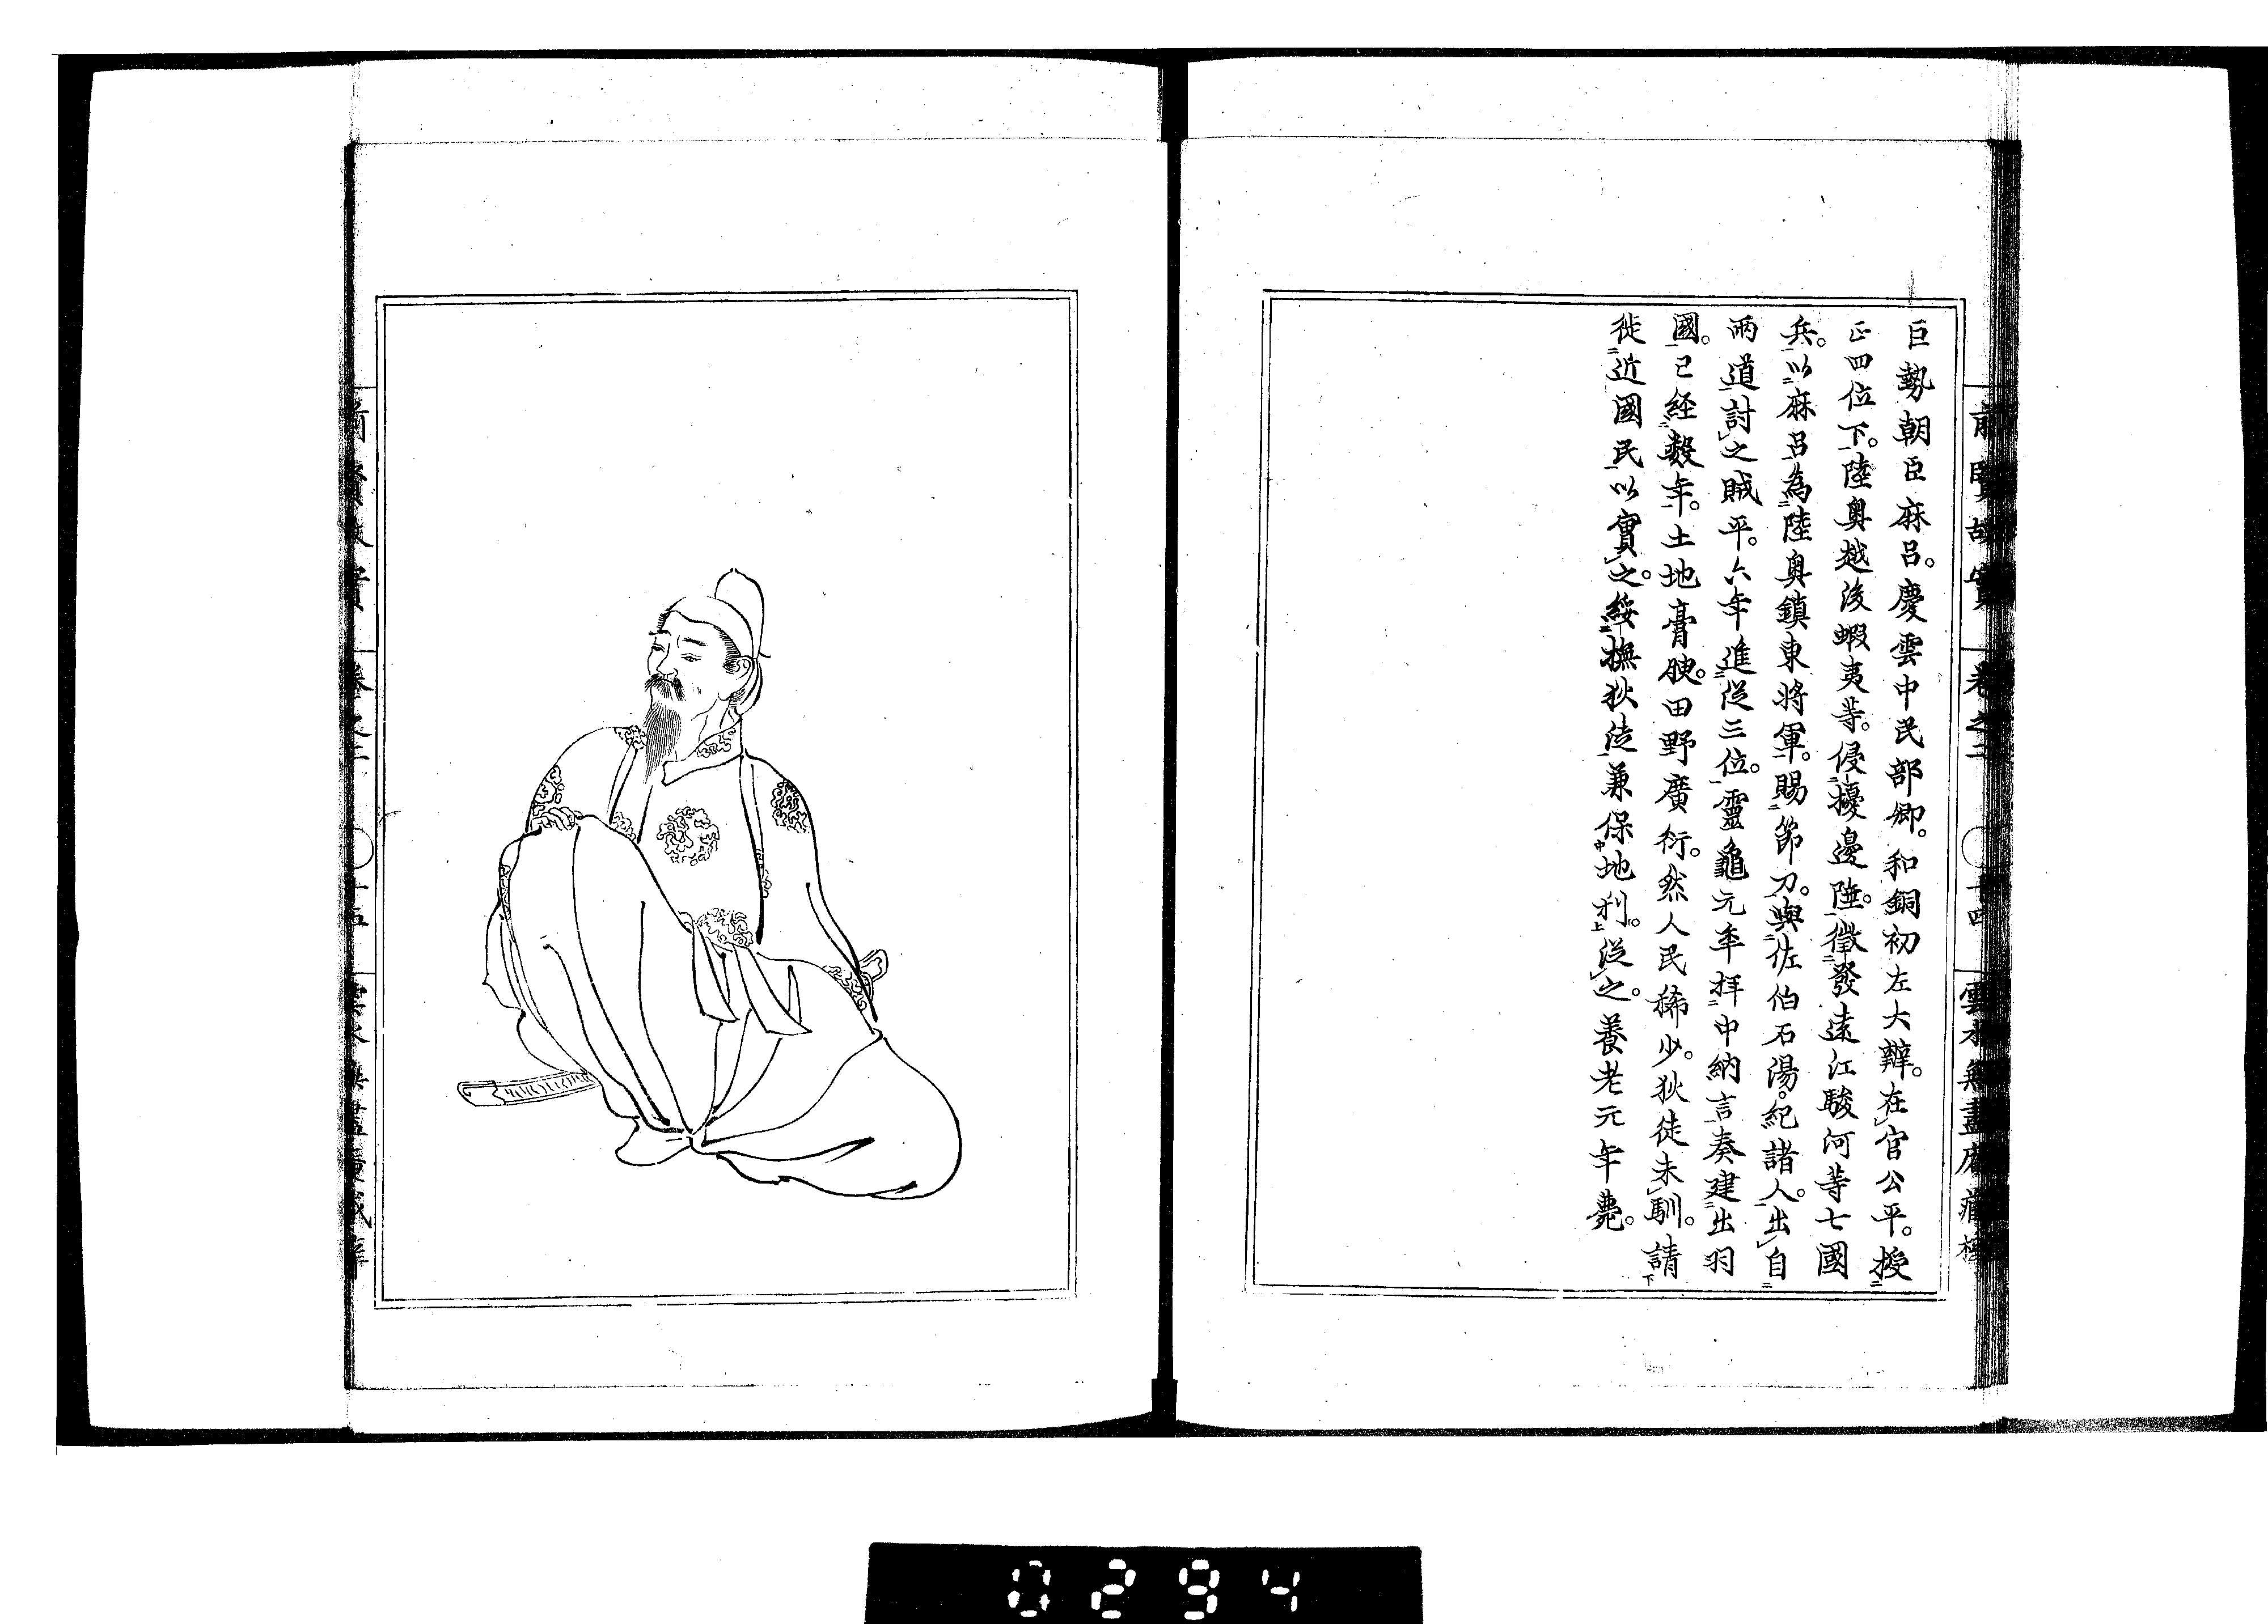 前賢故實 卷之二 十四 雲水無盡庵藏梓
巨勢朝臣麻呂。慶雲中民部卿。和銅初左大辨。在官公平。授
正四位下。陸奧越後蝦夷等。侵擾邊陲。徵發遠江駿河等七國
兵。以麻呂為陸奧鎮東將軍。賜節刀。與佐伯石湯。紀諸人。出自
兩道討之賊平。六年進從三位。靈龜元年拝中納言奏建出羽
國。已経數年。土地膏腴。田野廣衍。然人民稀少。狄徒未馴。請
徙近國民以實之。綏撫狄徒兼保地利。從之。養老元年薨。
0294